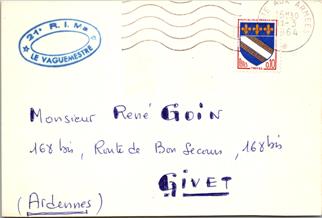 21e R.I.Ma
LE VAGUEMESTRE
AUX ARMEES
1964
0,10
Monsieur René GOIN
168 bis, Route de Bon Secours, 168 bis
GIVET
(Ardennes)